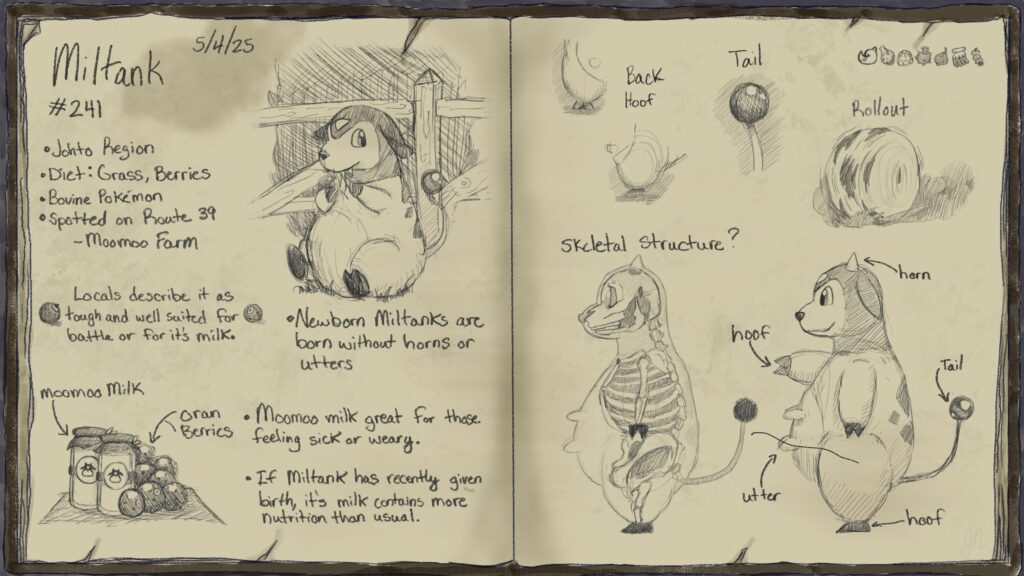 Miltank
5/4/25
#241
•Johto Region
•Diet: Grass, Berries
•Bovine Pokémon
•Spotted on Route 39
-Moomoo Farm
Locals describe it as
tough and well suited for
battle or for it's milk.
•Newborn Miltanks are
born without horns or
utters
moomoo Milk
oran
Berries
•Moomoo milk great for those
feeling sick or weary.
•If Miltank has recently given
birth, it's milk contains more
nutrition than usual.
Back
Hoof
Tail
Rollout
Skeletal Structure?
horn
hoof
Tail
utter
hoof